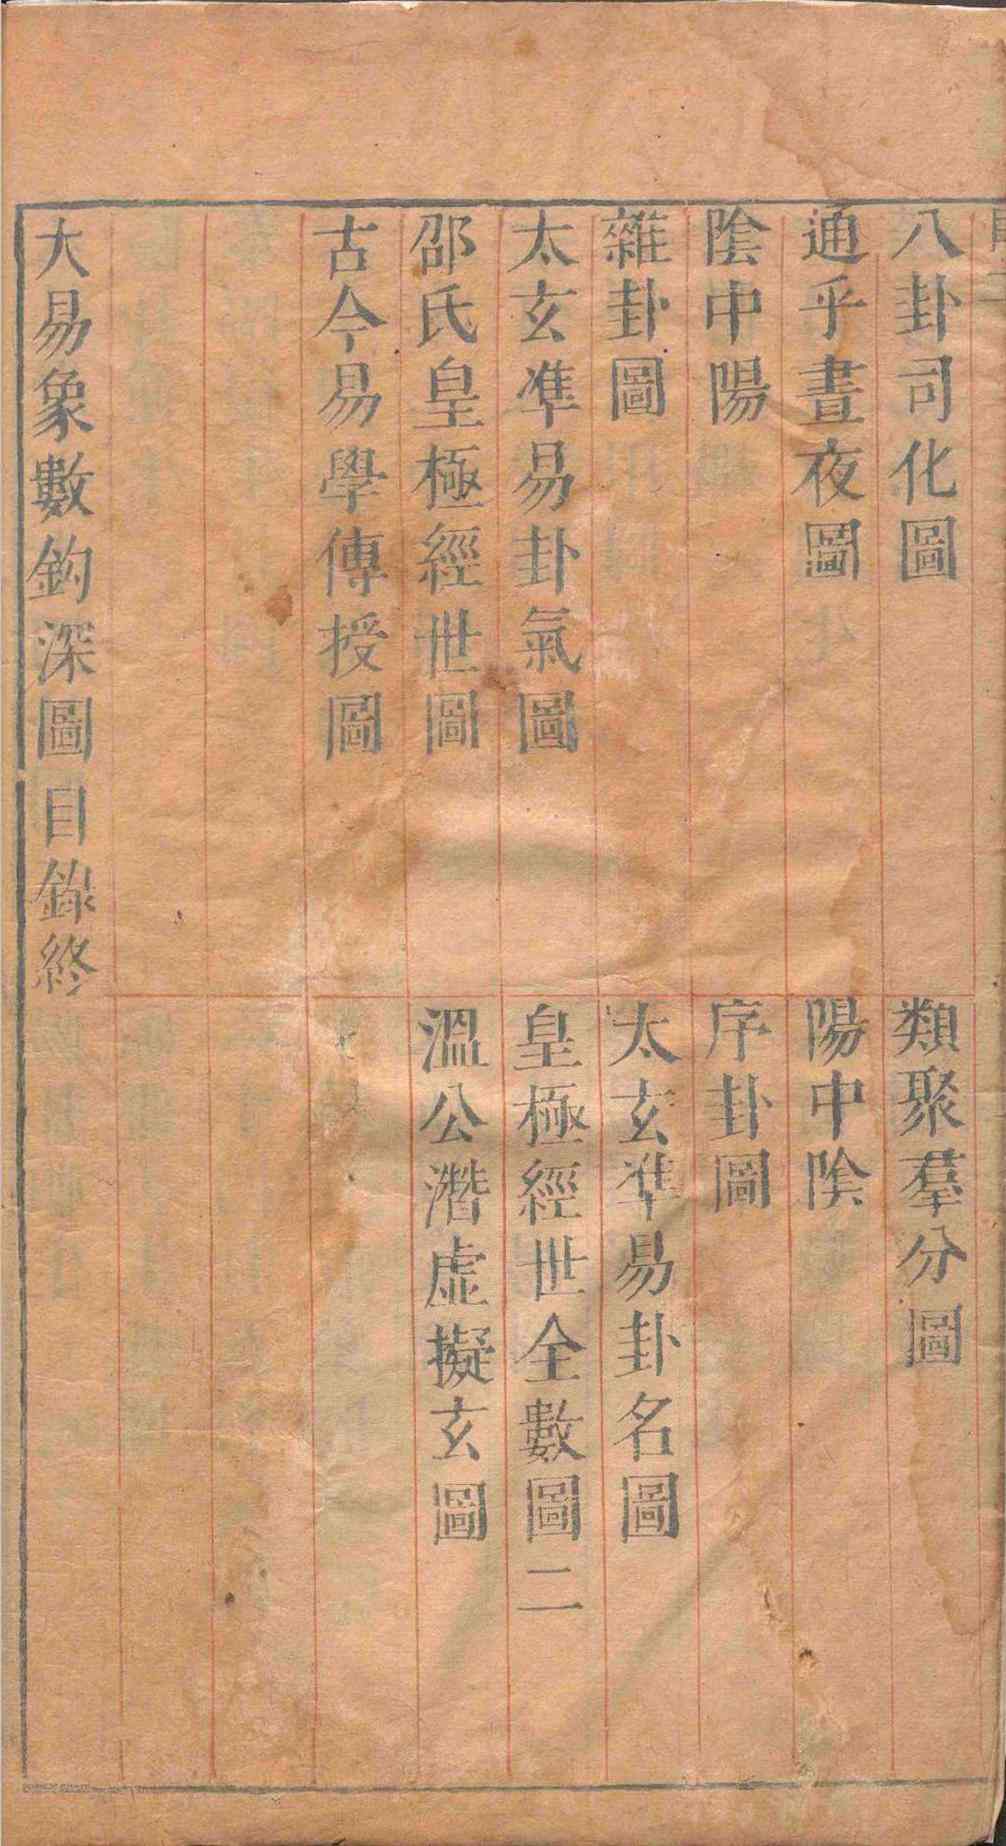 八卦司化圖
類聚羣分圖
通乎晝夜圖
陽中陰
陰中陽
序卦圖
雜卦圖
太玄準易卦名圖
太玄準易卦氣圖
皇極經世全數圖二
邵氏皇極經世圖
溫公潛虛擬玄圖
古今易學傳授圖
大易象數鈎深圖目錄終